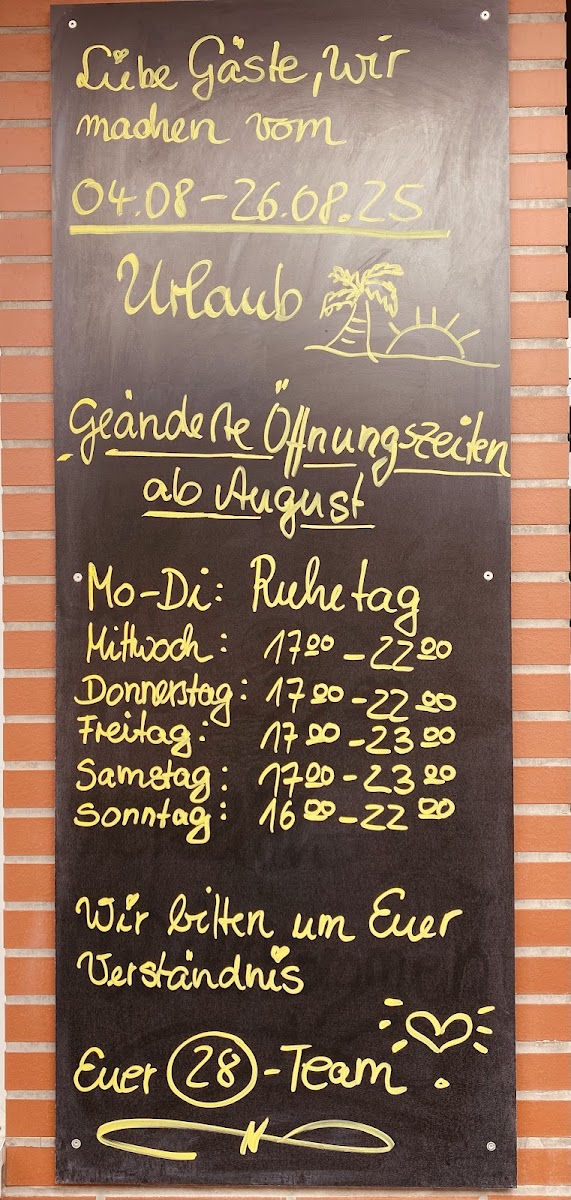 Liebe Gäste, wir
machen vom
04.08 - 26.08.25
Urlaub
Geänderte Öffnungszeiten
ab August
Mo-Di: Ruhetag
Mittwoch: 17⁰⁰ - 22⁰⁰
Donnerstag: 17⁰⁰ - 22⁰⁰
Freitag: 17⁰⁰ - 23⁰⁰
Samstag: 17⁰⁰ - 23⁰⁰
Sonntag: 16⁰⁰ - 22⁰⁰
Wir bitten um Euer
Verständnis
Euer 28-Team